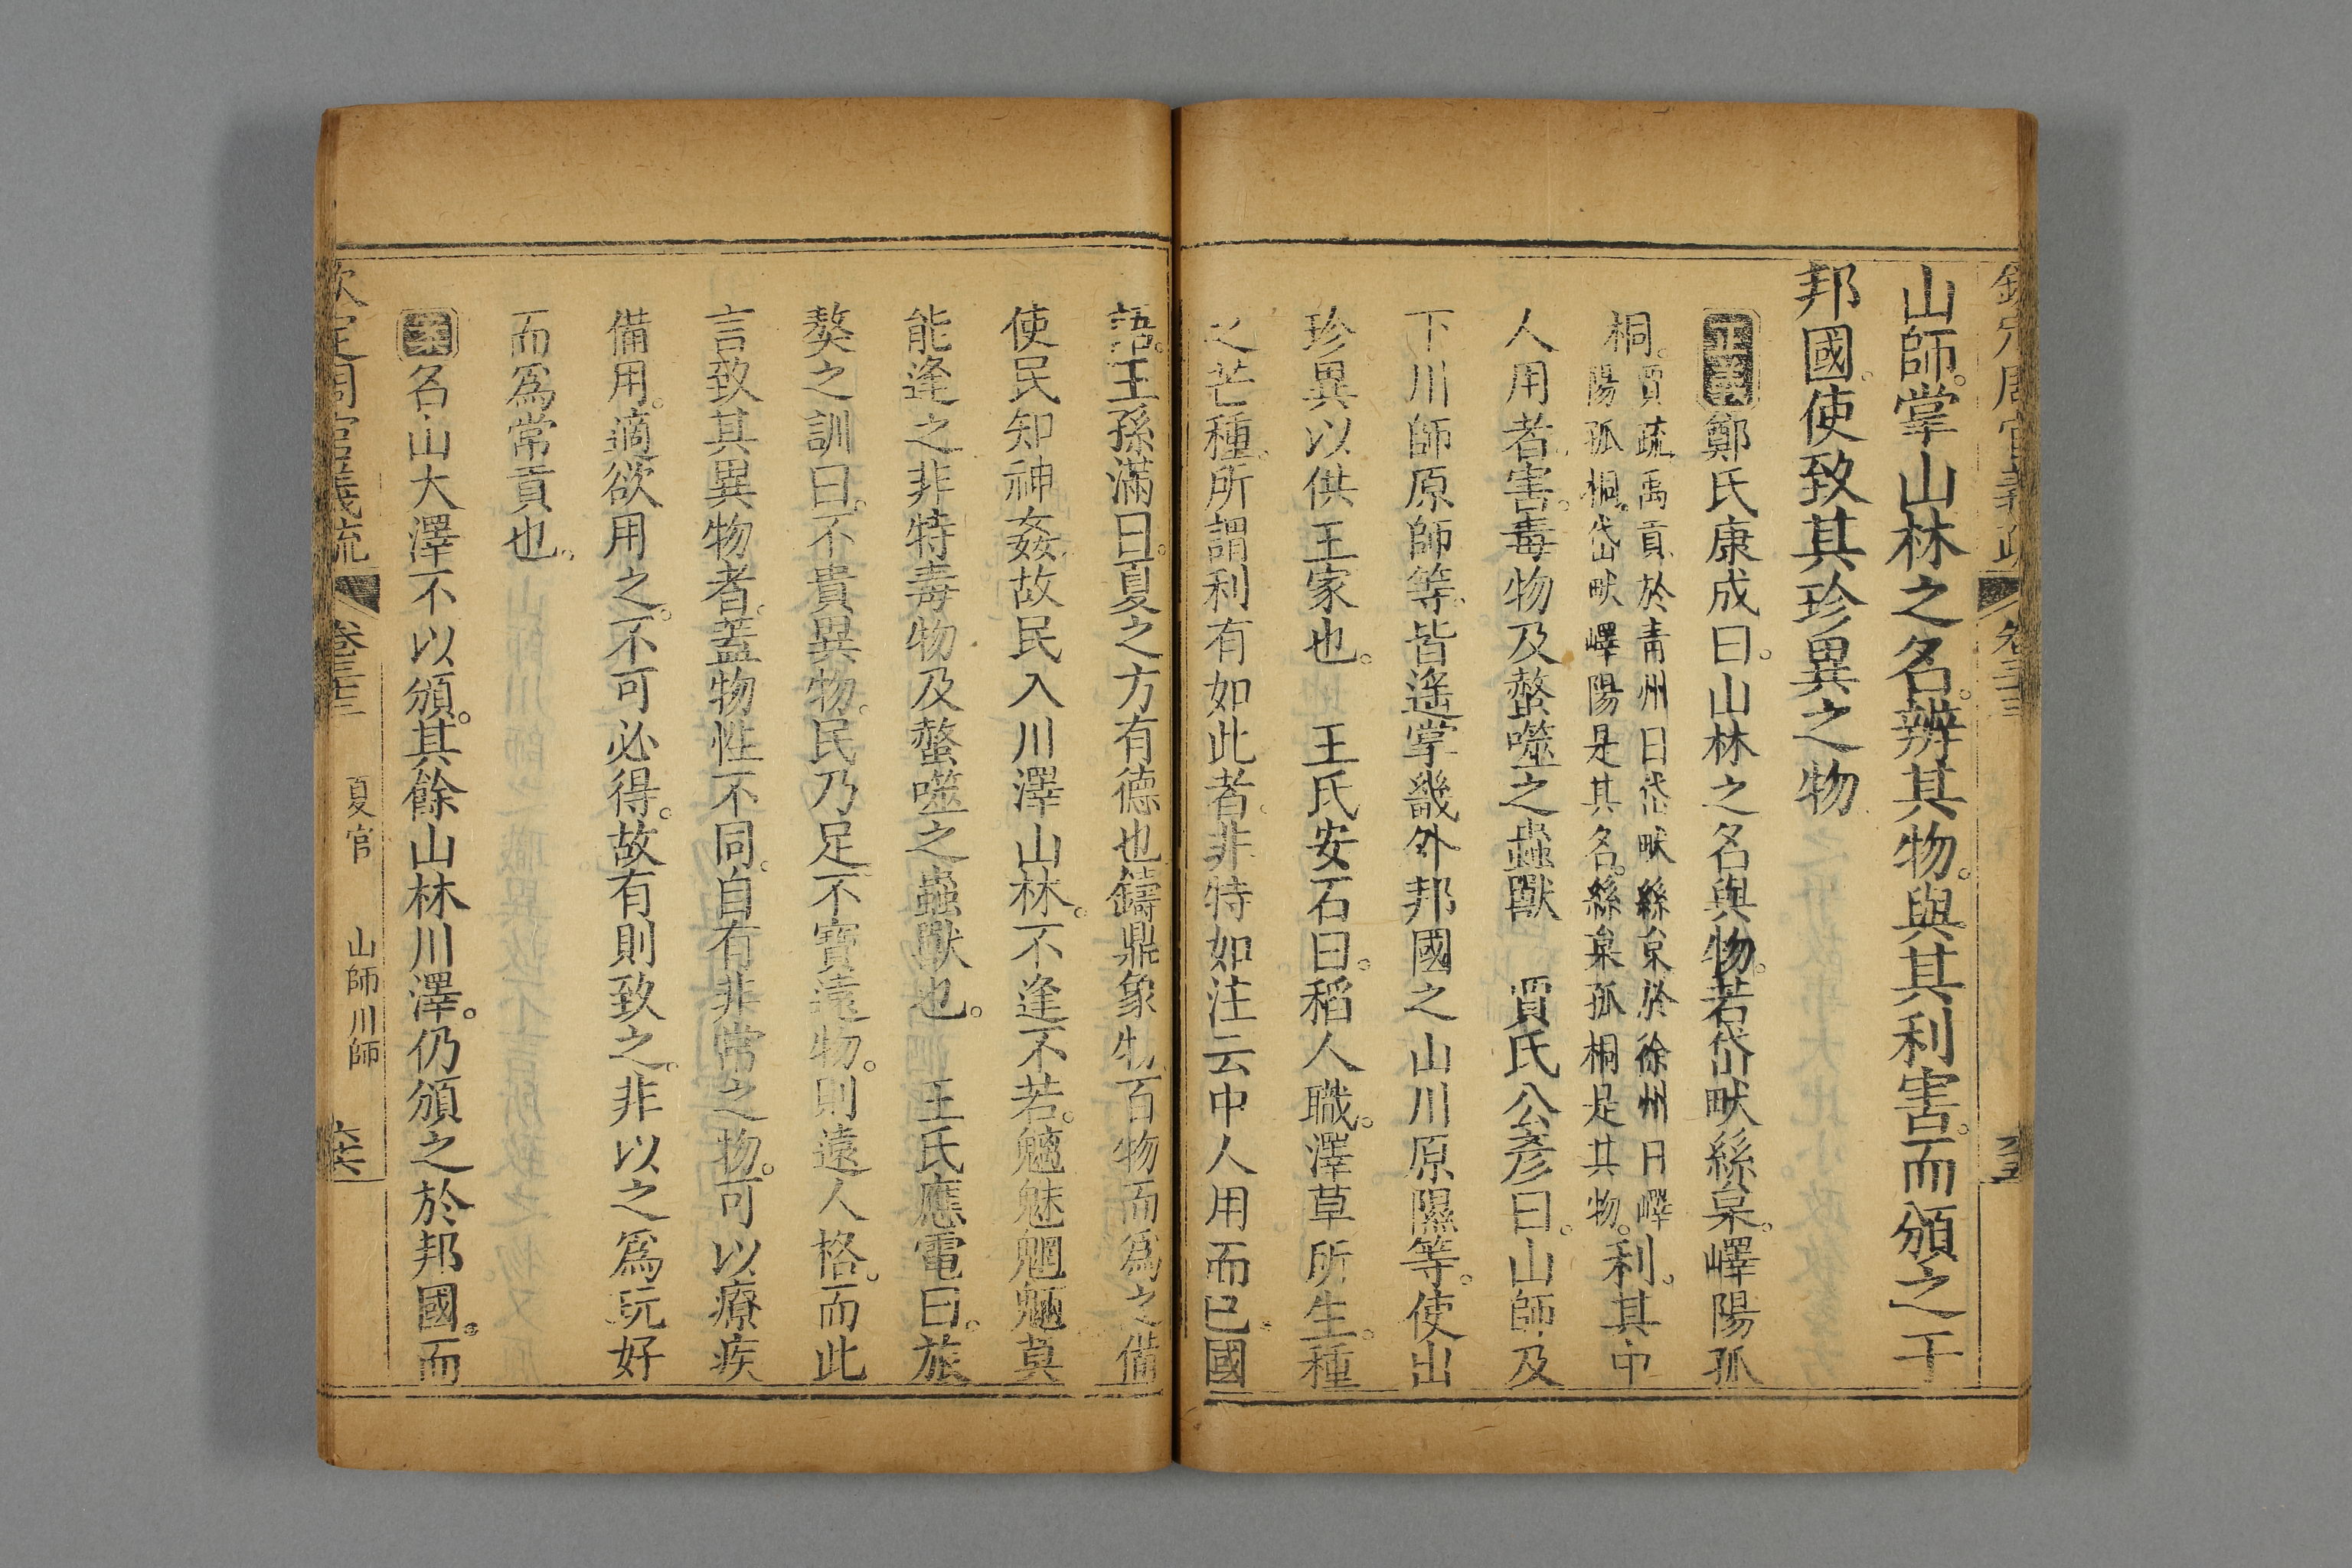 山師。掌山林之名。辨其物。與其利害。而頒之于
邦國。使致其珍異之物
正義鄭氏康成曰。山林之名與物。若岱畎絲枲。嶧陽孤
桐。賈疏禹貢於青州曰岱畎絲枲於徐州曰嶧
陽孤桐。岱畎嶧陽是其名。絲枲孤桐是其物。利。其中
人用者。害。毒物及螫噬之蟲獸　賈氏公彥曰。山師及
下川師原師等。皆遙掌畿外邦國之山川原隰等。使出
珍異以供王家也。　王氏安石曰。稻人職。澤草所生。種
之芒種。所謂利有如此者。非特如注云中人用而已。國
語。王孫滿曰。夏之方有德也鑄鼎象物百物而爲之備
使民知神姦故民入川澤山林。不逢不若。魑魅魍魎莫
能逢之非特毒物及螫噬之蟲獸也。　王氏應電曰。旅
獒之訓曰。不貴異物。民乃足不寶遠物。則遠人格。而此
言致其異物者。蓋物性不同。自有非常之物。可以療疾
備用。適欲用之。不可必得。故有則致之。非以之爲玩好
而爲常貢也。
案名山大澤不以頒。其餘山林川澤。仍頒之於邦國。而
欽定周官義疏　卷三十三　夏官　山師川師